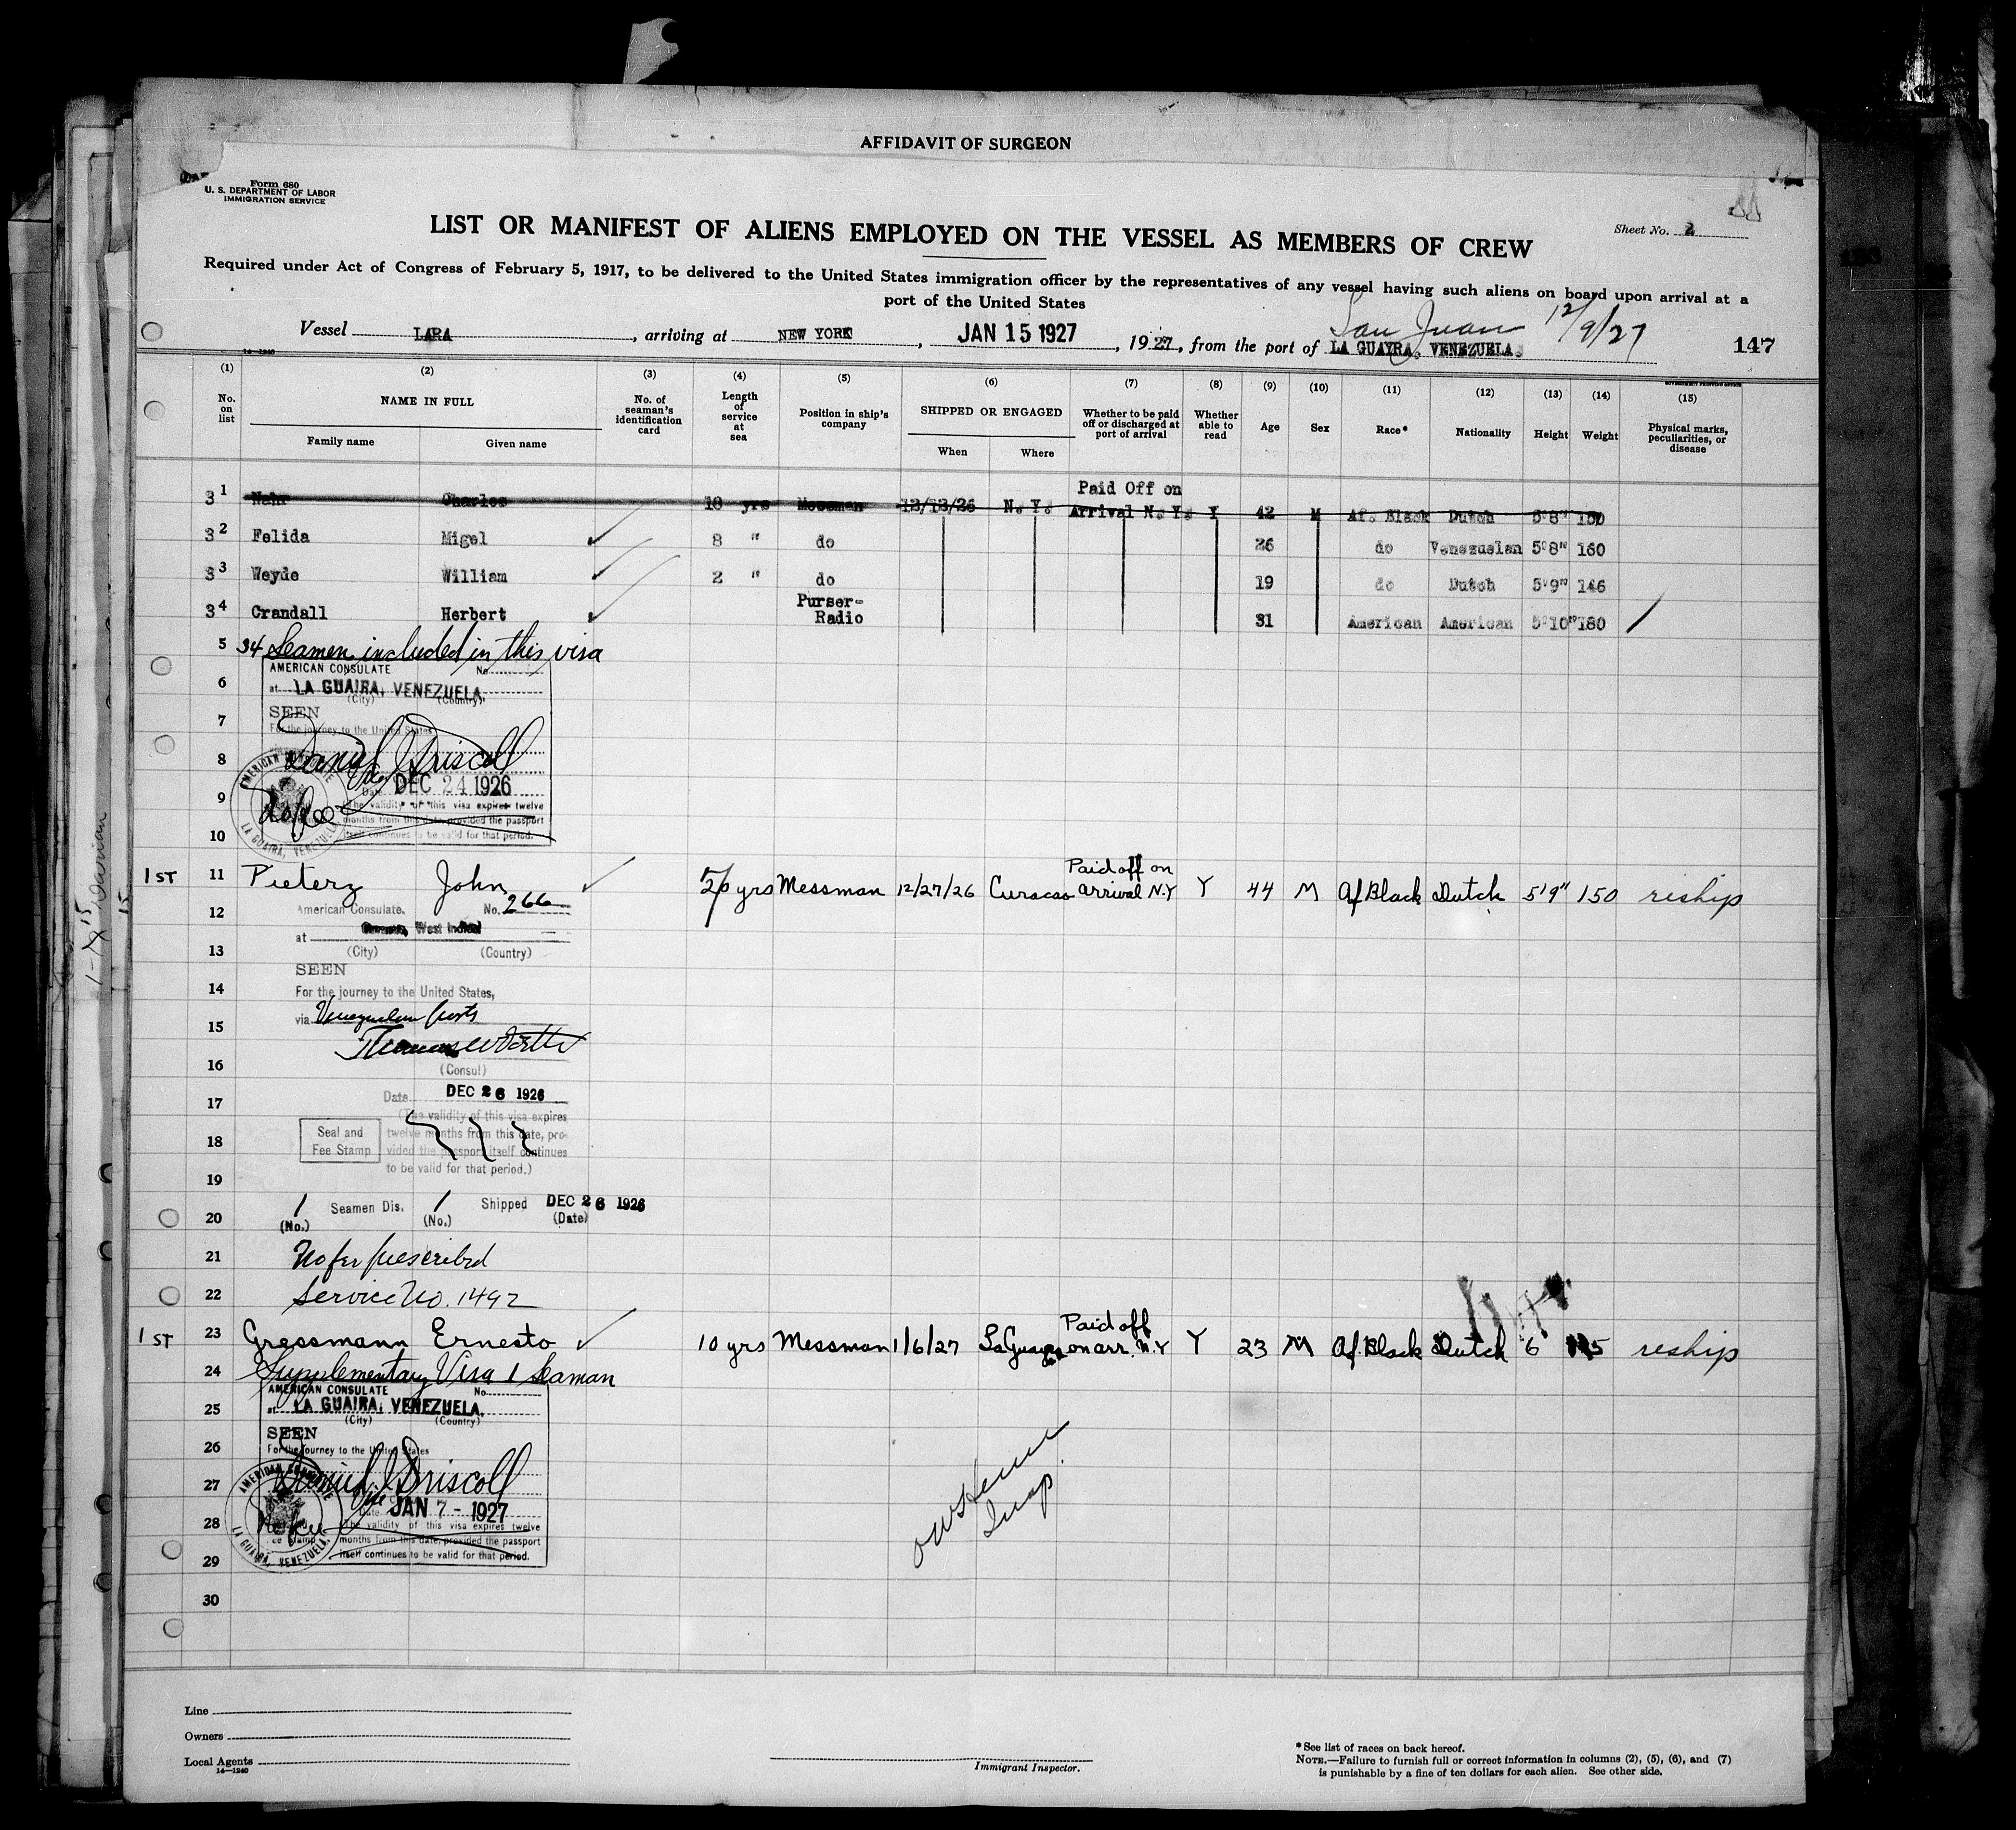 AFFIDAVIT OF SURGEON
Form 680
U. S. DEPARTMENT OF LABOR
IMMIGRATION SERVICE
Sheet No. 2
LIST OR MANIFEST OF ALIENS EMPLOYED ON THE VESSEL AS MEMBERS OF CREW
Required under Act of Congress of February 5, 1917, to be delivered to the United States immigration officer by the representatives of any vessel having such aliens on board upon arrival at a
port of the United States
San Juan 12/9/27
Vessel LARA, arriving at NEW YORK, JAN 15 1927, 1927, from the port of LA GUAYRA, VENEZUELA. 147
14-1240
GOVERNMENT PRINTING OFFICE
(1) (2) (3) (4) (5) (6) (7) (8) (9) (10) (11) (12) (13) (14) (15)
No. on list NAME IN FULL Family name Given name No. of seaman's identification card Length of service at sea Position in ship's company SHIPPED OR ENGAGED When Where Whether to be paid off or discharged at port of arrival Whether able to read Age Sex Race* Nationality Height Weight Physical marks, peculiarities, or disease
Paid Off on
31 Nahr Charles 18 yrs Messman 12/13/26 N. Y. Arrival N. Y. Y 42 M Af. Black Dutch 5'8" 150
32 Felida Migel 8 " do 26 do Venezuelan 5'8" 160
33 Weyde William 2 " do 19 do Dutch 5'9" 146
34 Crandall Herbert Purser-Radio 31 American American 5'10" 180
5 34 Seamen included in this visa
AMERICAN CONSULATE No.
6 at LA GUAIRA, VENEZUELA.
(City) (Country)
7 SEEN
For the journey to the United States
8 Daniel J Driscoll
Vice
Date DEC 24 1926
9 The validity of this visa expires twelve
No fee months from this date, provided the passport
10 itself continues to be valid for that period.
AMERICAN CONSULATE LA GUAIRA, VENEZUELA
Paid off on
1 ST 11 Pieterz John 20 yrs Messman 12/27/26 Curacao arrival N.Y Y 44 M Af Black Dutch 5'9" 150 reship
12 American Consulate. No. 266
at West Indies
13 (City) (Country)
SEEN
14 For the journey to the United States,
15 via Venezuelan ports
16 (Consul)
Date DEC 26 1926
17 (The validity of this visa expires
18 Seal and Fee Stamp twelve months from this date, pro-
vided the passport itself continues
to be valid for that period.)
19
20 1 Seamen Dis. 1 Shipped DEC 26 1926
(No.) (No.) (Date)
21 No fee prescribed
22 Service No. 1492
Paid off
1 ST 23 Gressmann Ernesto 10 yrs Messman 1/6/27 LaGuayra on arr. N.Y Y 23 M Af. Black Dutch 6 reship
24 Supplementary Visa 1 Seaman
AMERICAN CONSULATE No.
25 at LA GUAIRA, VENEZUELA.
(City) (Country)
26 SEEN
For the journey to the United States
27 Daniel J Driscoll
Vice
Date JAN 7 - 1927
28 The validity of this visa expires twelve
No fee months from this date, provided the passport
29 itself continues to be valid for that period.
AMERICAN CONSULATE LA GUAIRA, VENEZUELA
Insp.
30
Line
Owners
Local Agents
14-1240
Immigrant Inspector.
*See list of races on back hereof.
NOTE.—Failure to furnish full or correct information in columns (2), (5), (6), and (7)
is punishable by a fine of ten dollars for each alien. See other side.